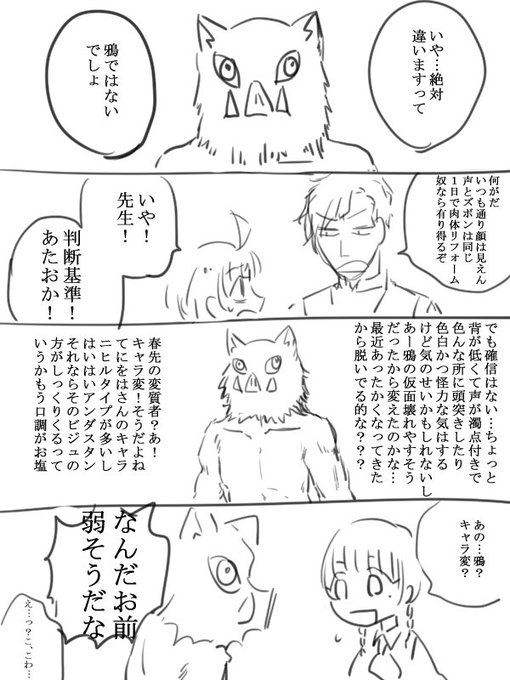 いや…絶対
違いますって
鴉ではない
でしょ
何がだ
いつも通り顔は見えん
声とズボンは同じ
１日で肉体リフォーム
奴なら有り得るぞ
いや！
先生！
判断基準！
あたおか！
でも確信はない…ちょっと
背が低くて声が濁点付きで
色んな所に頭突きしたり
色白かつ怪力な気はする
けど気のせいかもしれないし
あー鴉の仮面壊れやすそう
だったから変えたのかな…
最近あったかくなってきた
から脱いでる的な？？？
春先の変質者？あ！
キャラ変！そうだよね
てにをはさんのキャラ
ニヒルタイプが多いし
はいはいアンダスタン
それならそのビジュの
方がしっくりくるって
いうかもう口調がお塩
あの…鴉？
キャラ変？
なんだお前
弱そうだな
え…っ？こ、こわ…